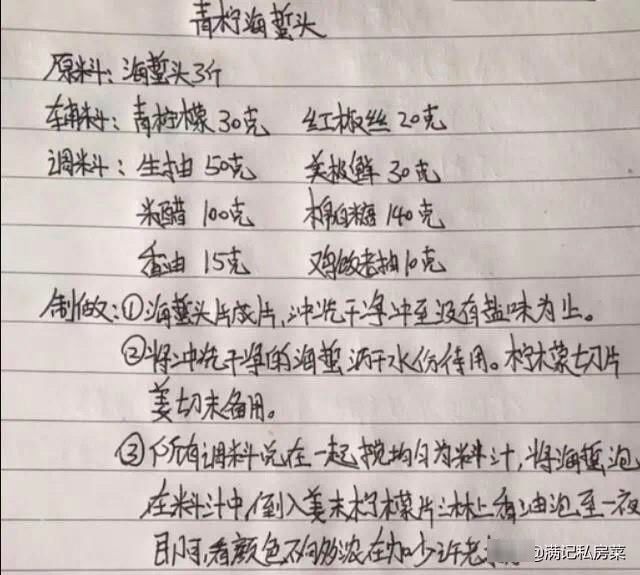 青柠海蜇头
原料: 海蜇头3斤
辅料: 青柠檬30克 红椒丝20克
调料: 生抽50克 美极鲜30克
米醋100克 棉白糖140克
香油15克 鸡饭老抽10克
制做: ①海蜇头片成片,冲洗干净冲至没有盐味为止。
②将冲洗干净的海蜇沥干水份待用。柠檬切片
姜切末备用。
③所有调料兑在一起搅均匀为料汁,将海蜇泡
在料汁中,倒入姜末柠檬片淋上香油泡至一夜
即可,看颜色不够浓在加少许老
@满记私房菜